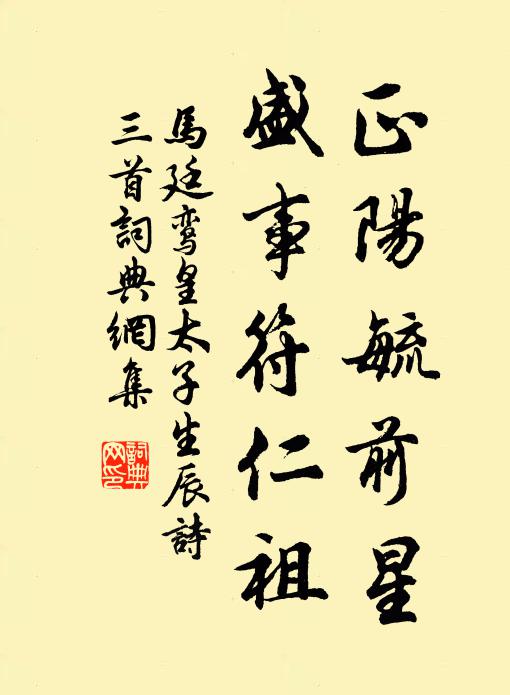 正陽毓前星
盛事符仁祖
馬廷鸞皇太子生辰詩
三首詞典網集
詞典网印